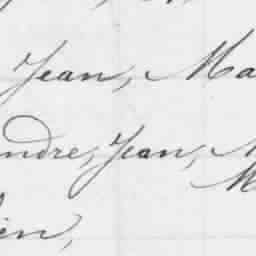 Jean, Ma
ndre, Jean, M
M
ien,